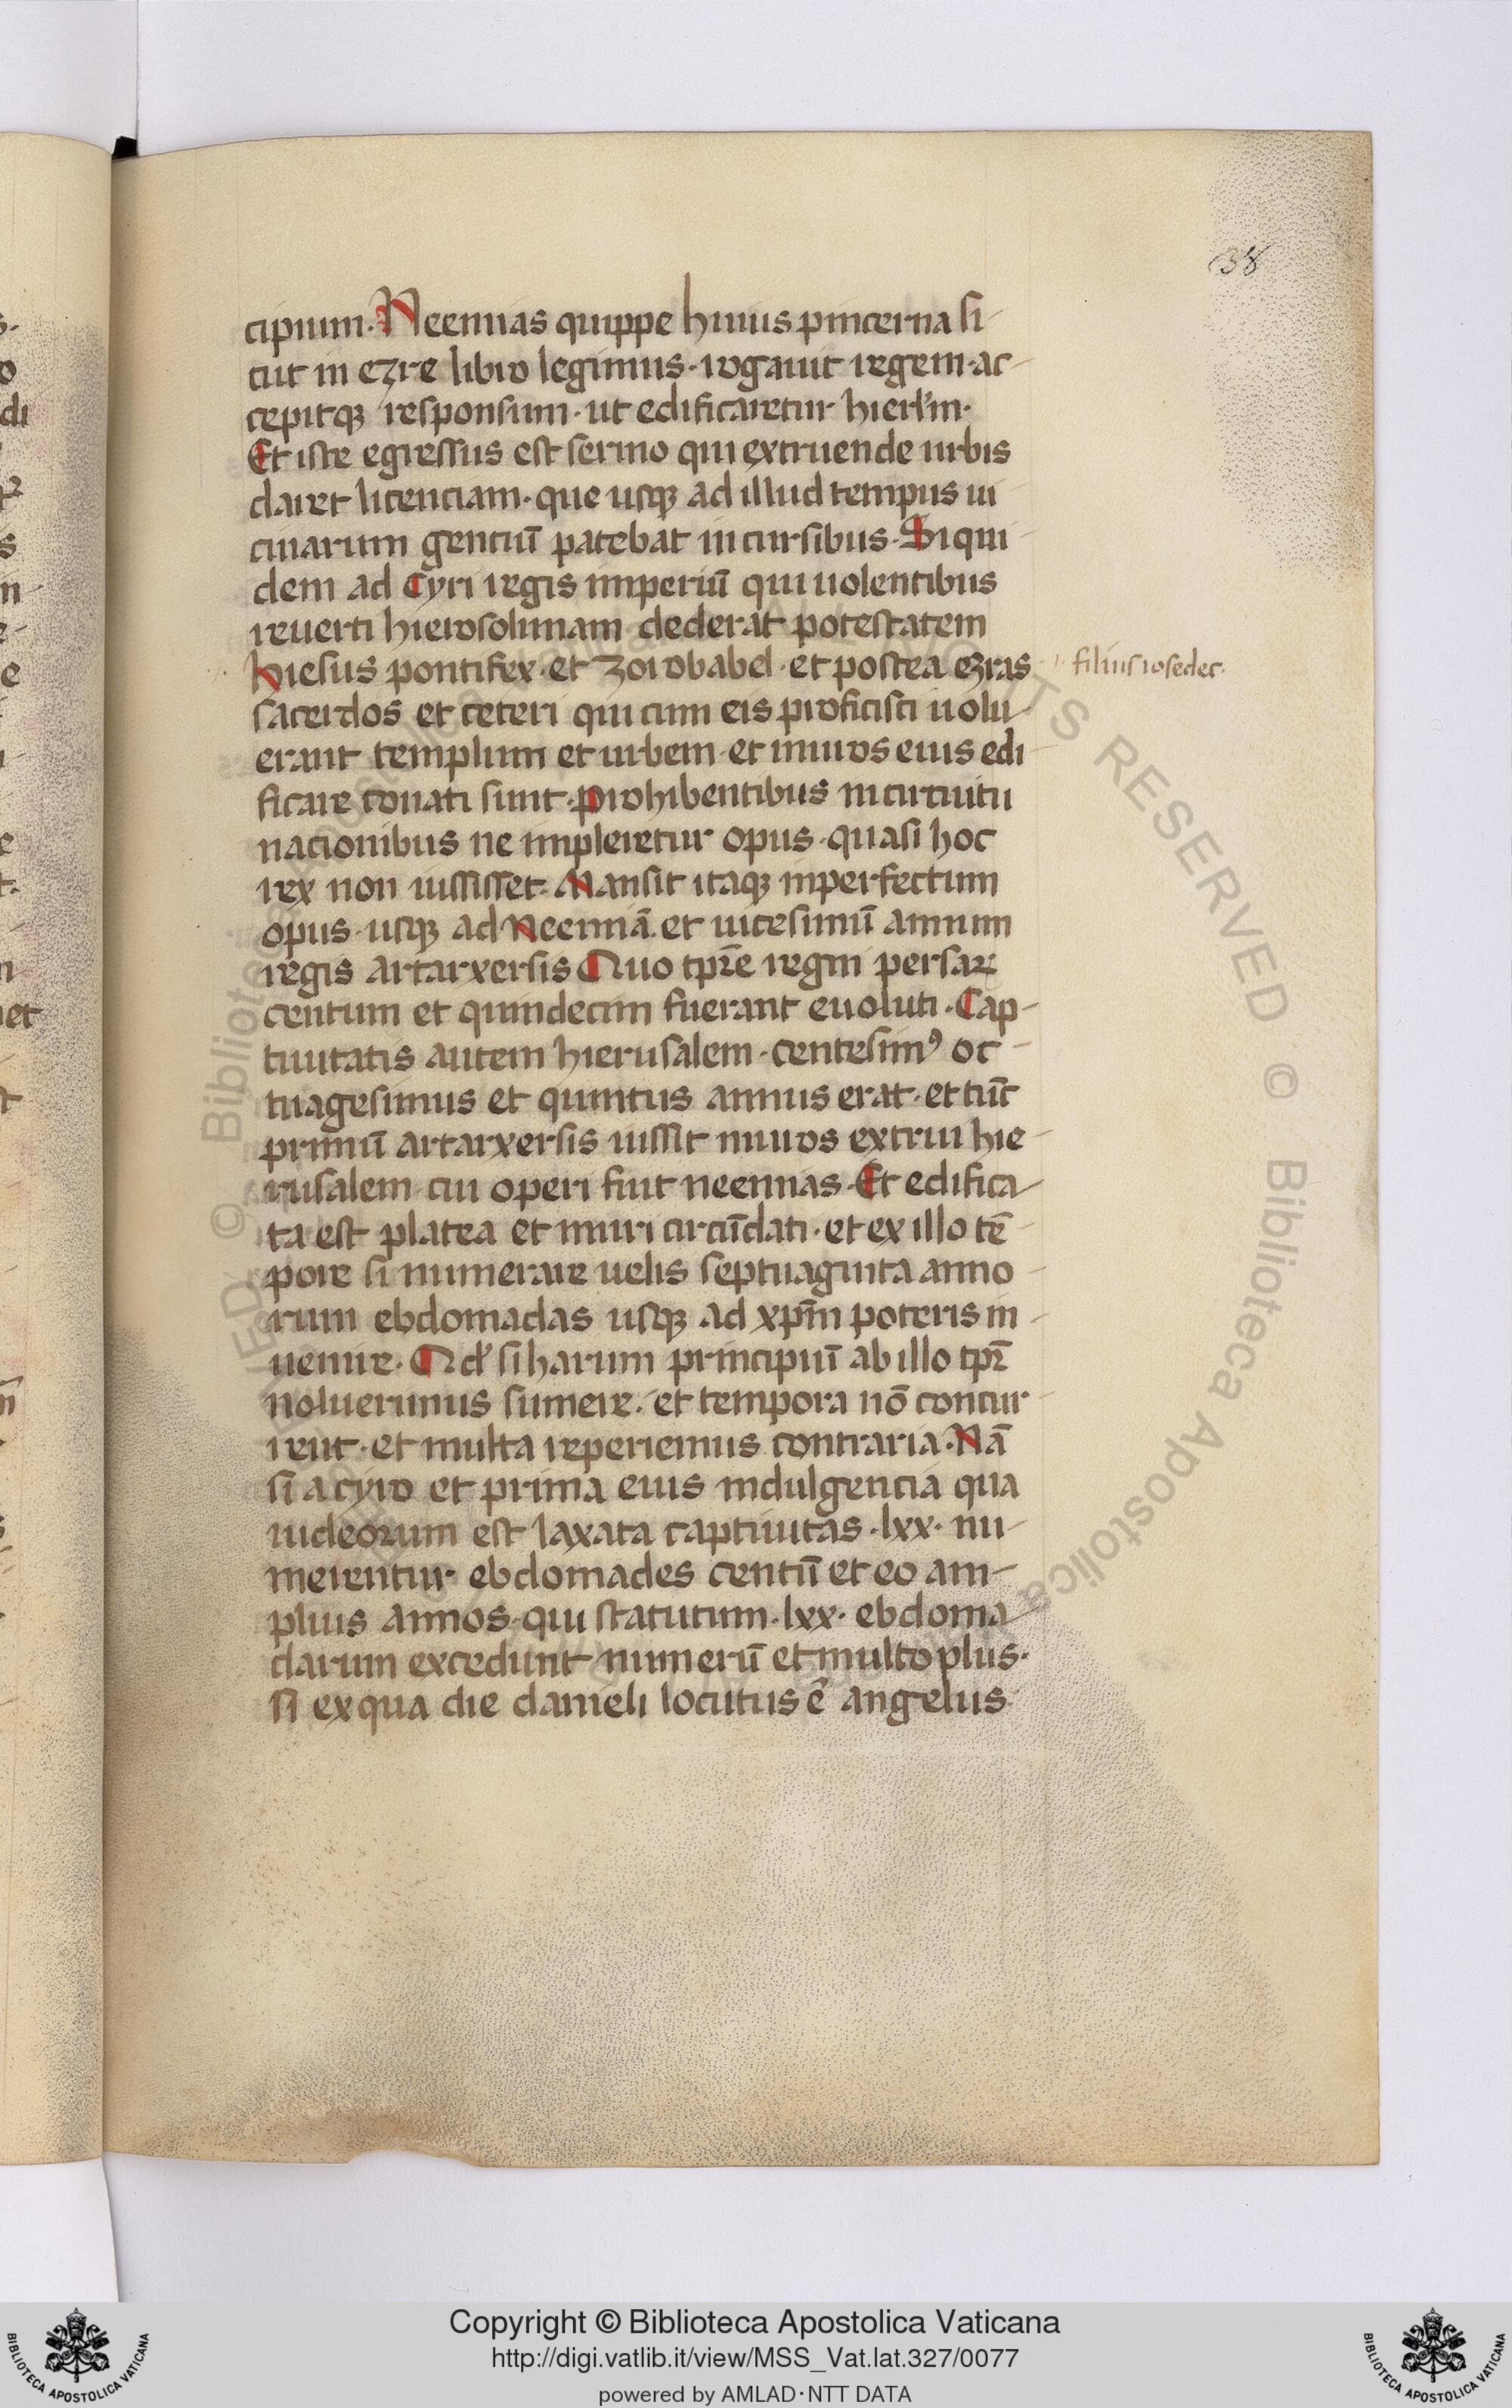 38
cipium. Neemias quippe huius pincerna si-
cut in ezre libro legimus. rogauit regem. ac-
cepitqꝫ responsum. ut edificaretur hierl'm.
Et iste egressus est sermo qui extruende urbis
daret licenciam. que usqꝫ ad illud tempus ui-
cinarum genciū patebat incursibus. Siqui-
dem ad Cyri regis imperiū qui uolentibus
reuerti hierosolimam dederat potestatem
hiesus pontifex. et Zorobabel. et postea ezras filius iosedec.
sacerdos et ceteri qui cum eis proficisci uolu-
erant templum et urbem et muros eius edi-
ficare conati sunt. prohibentibus in circuitu
nacionibus ne impleretur opus. quasi hoc
rex non iussisset. Mansit itaqꝫ inperfectum
opus. usqꝫ ad Neemiā. et uicesimū annum
regis artarxersis Quo tp̄re regni persaꝝ
centum et quindecim fuerant euoluti. Cap-
tiuitatis autem hierusalem. centesimꝰ oc-
tuagesimus et quintus annus erat. et tūc
primū artarxersis iussit muros extrui hie-
rusalem. cui operi fuit neemias. Et edifica-
ta est platea et muri circūdati. et ex illo tē-
pore si numerare uelis septuaginta anno-
rum ebdomadas usqꝫ ad xp̄m poteris in-
uenire. Qd' si harum principiū ab illo tp̄r
noluerimus sumere. et tempora nō concur-
rent. et multa reperiemus contraria. Nā
si a cyro et prima eius indulgencia qua
iudeorum est laxata captiuitas. lxx. nu-
merentur ebdomades centū et eo am-
plius annos. qui statutum. lxx. ebdoma-
darum excedunt numerū et multo plus.
si ex qua die danieli locutus ē angelus
Copyright © Biblioteca Apostolica Vaticana
http://digi.vatlib.it/view/MSS_Vat.lat.327/0077
powered by AMLAD·NTT DATA